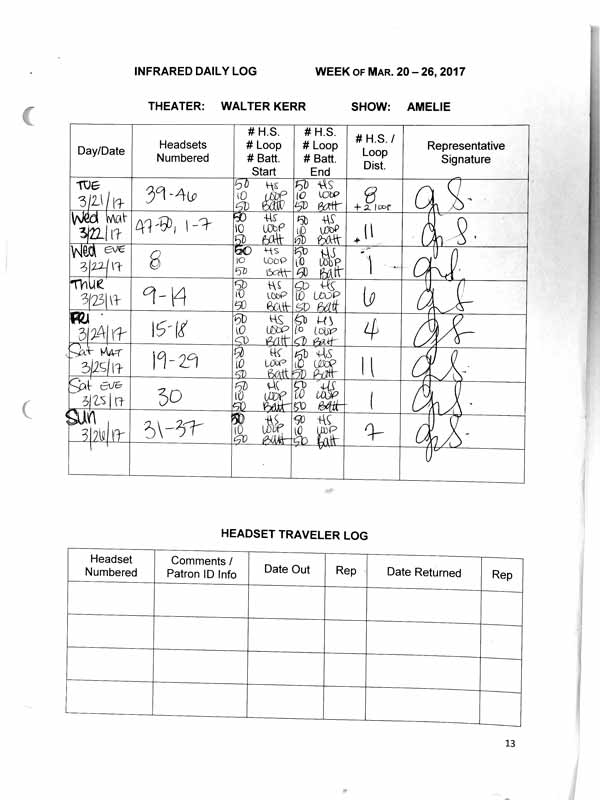 INFRARED DAILY LOG WEEK OF MAR. 20 – 26, 2017
THEATER: WALTER KERR SHOW: AMELIE
Day/Date
Headsets
Numbered
# H.S.
# Loop
# Batt.
Start
# H.S.
# Loop
# Batt.
End
# H.S. /
Loop
Dist.
Representative
Signature
TUE
3/21/17
39-46
50 HS
10 LOOP
50 Batt
50 HS
10 LOOP
50 Batt
8
+ 2 loop
Wed mat
3/22/17
47-50, 1-7
50 HS
10 LOOP
50 Batt
50 HS
10 LOOP
50 Batt
11
Wed EVE
3/22/17
8
50 HS
10 LOOP
50 Batt
50 HS
10 LOOP
50 Batt
1
THUR
3/23/17
9-14
50 HS
10 LOOP
50 Batt
50 HS
10 LOOP
50 Batt
6
FRI
3/24/17
15-18
50 HS
10 LOOP
50 Batt
50 HS
10 LOOP
50 Batt
4
Sat MAT
3/25/17
19-29
50 HS
10 LOOP
50 Batt
50 HS
10 LOOP
50 Batt
11
Sat EVE
3/25/17
30
50 HS
10 LOOP
50 Batt
50 HS
10 LOOP
50 Batt
1
Sun
3/26/17
31-37
50 HS
10 LOOP
50 Batt
50 HS
10 LOOP
50 Batt
7
HEADSET TRAVELER LOG
Headset
Numbered
Comments /
Patron ID Info
Date Out
Rep
Date Returned
Rep
13